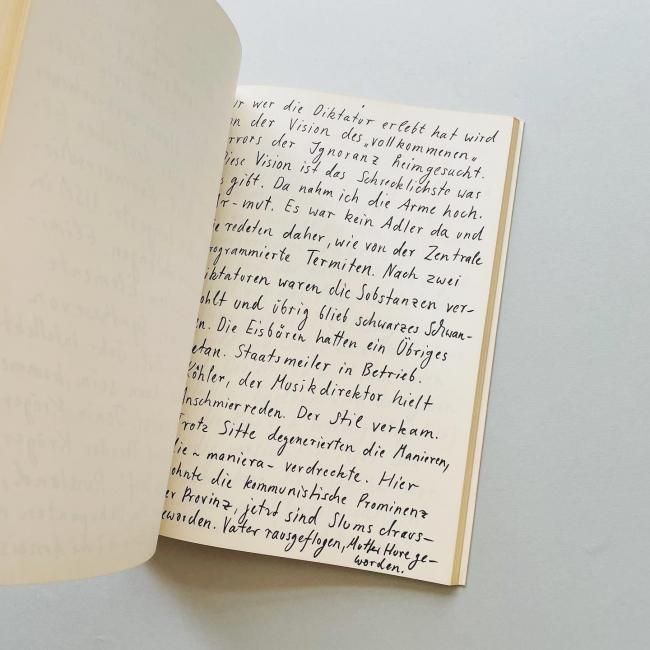 ur wer die Diktatur erlebt hat wird
n der Vision des „vollkommenen„
rrors der Ignoranz heimgesucht.
Diese Vision ist das Schrecklichste was
s gibt. Da nahm ich die Arme hoch.
r-mut. Es war kein Adler da und
ie redeten daher, wie von der Zentrale
rogrammierte Termiten. Nach zwei
iktaturen waren die Substanzen ver-
ohlt und übrig blieb schwarzes Schwan-
en. Die Eisbären hatten ein Übriges
etan. Staatsmeiler in Betrieb.
Köhler, der Musikdirektor hielt
Anschmierreden. Der Stil verkam.
Trotz Sitte degenerierten die Manieren,
die ~ maniera - verdreckte. Hier
ohnte die kommunistische Prominenz
er Provinz, jetzt sind Slums draus-
eworden. Vater rausgeflogen, Mutter Hure ge-
worden.